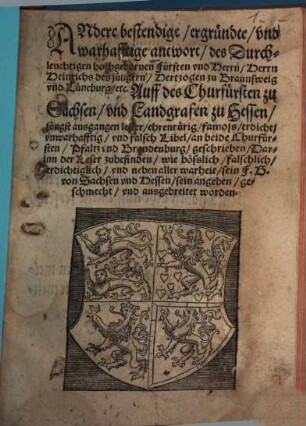 ANdere bestendige / ergründte / vnd
warhafftige antwort / des Durch-
leuchtigen hochgebornen Fürsten vnd Herrn / Herrn
Heinrichs des jüngern / Hertzogen zu Braunsweig
vnd Lüneburg / etc. Auff des Churfürsten zu
Sachsen / vnd Landgrafen zu Hessen /
jüngst ausgangen lester / ehrenrürig / famoss / erdicht /
vnwarhafftig / vnd falsch Libel / an beide Churfür-
sten / Pfaltz vnd Brandenburg / geschrieben / Dar-
inn der Leser zubefinden / wie bößlich / falschlich /
erdichtiglich / vnd neben aller warheit / sein F. G.
von Sachsen vnd Hessen / sein angeben / ge-
schmecht / vnd ausgebreitet worden.